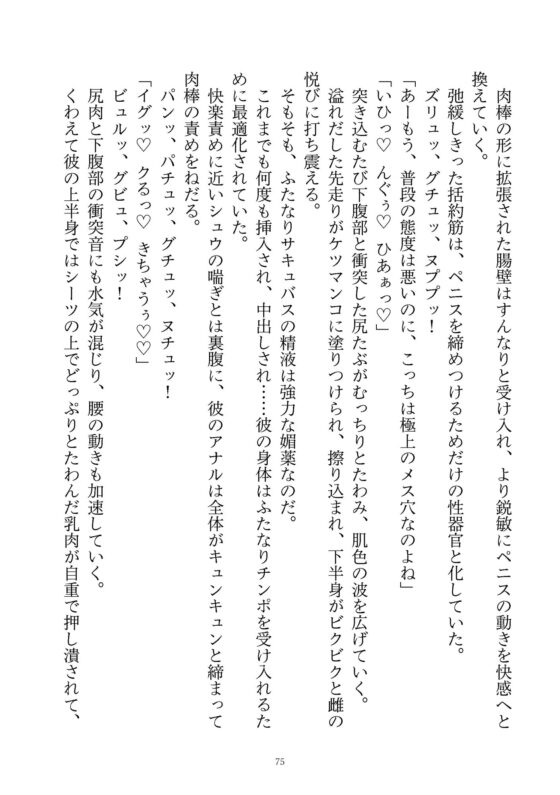 肉棒の形に拡張された腸壁はすんなりと受け入れ、より鋭敏にペニスの動きを快感へと
換えていく。
弛緩しきった括約筋は、ペニスを締めつけるためだけの性器官と化していた。
ズリュッ、グチュッ、ヌププッ！
「あーもう、普段の態度は悪いのに、こっちは極上のメス穴なのよね」
「いひっ♡　んぐぅ♡　ひあぁっ♡」
突き込むたび下腹部と衝突した尻たぶがむっちりとたわみ、肌色の波を広げていく。
溢れだした先走りがケツマンコに塗りつけられ、擦り込まれ、下半身がビクビクと雌の
悦びに打ち震える。
そもそも、ふたなりサキュバスの精液は強力な媚薬なのだ。
これまでも何度も挿入され、中出しされ……彼の身体はふたなりチンポを受け入れるた
めに最適化されていた。
快楽責めに近いシュウの喘ぎとは裏腹に、彼のアナルは全体がキュンキュンと締まって
肉棒の責めをねだる。
パンッ、パチュッ、グチュッ、ヌチュッ！
「イグッ♡　クるっ♡　きちゃうぅ♡♡」
ビュルッ、グビュ、プシッ！
尻肉と下腹部の衝突音にも水気が混じり、腰の動きも加速していく。
くわえて彼の上半身ではシーツの上でどっぷりとたわんだ乳肉が自重で押し潰されて、
75